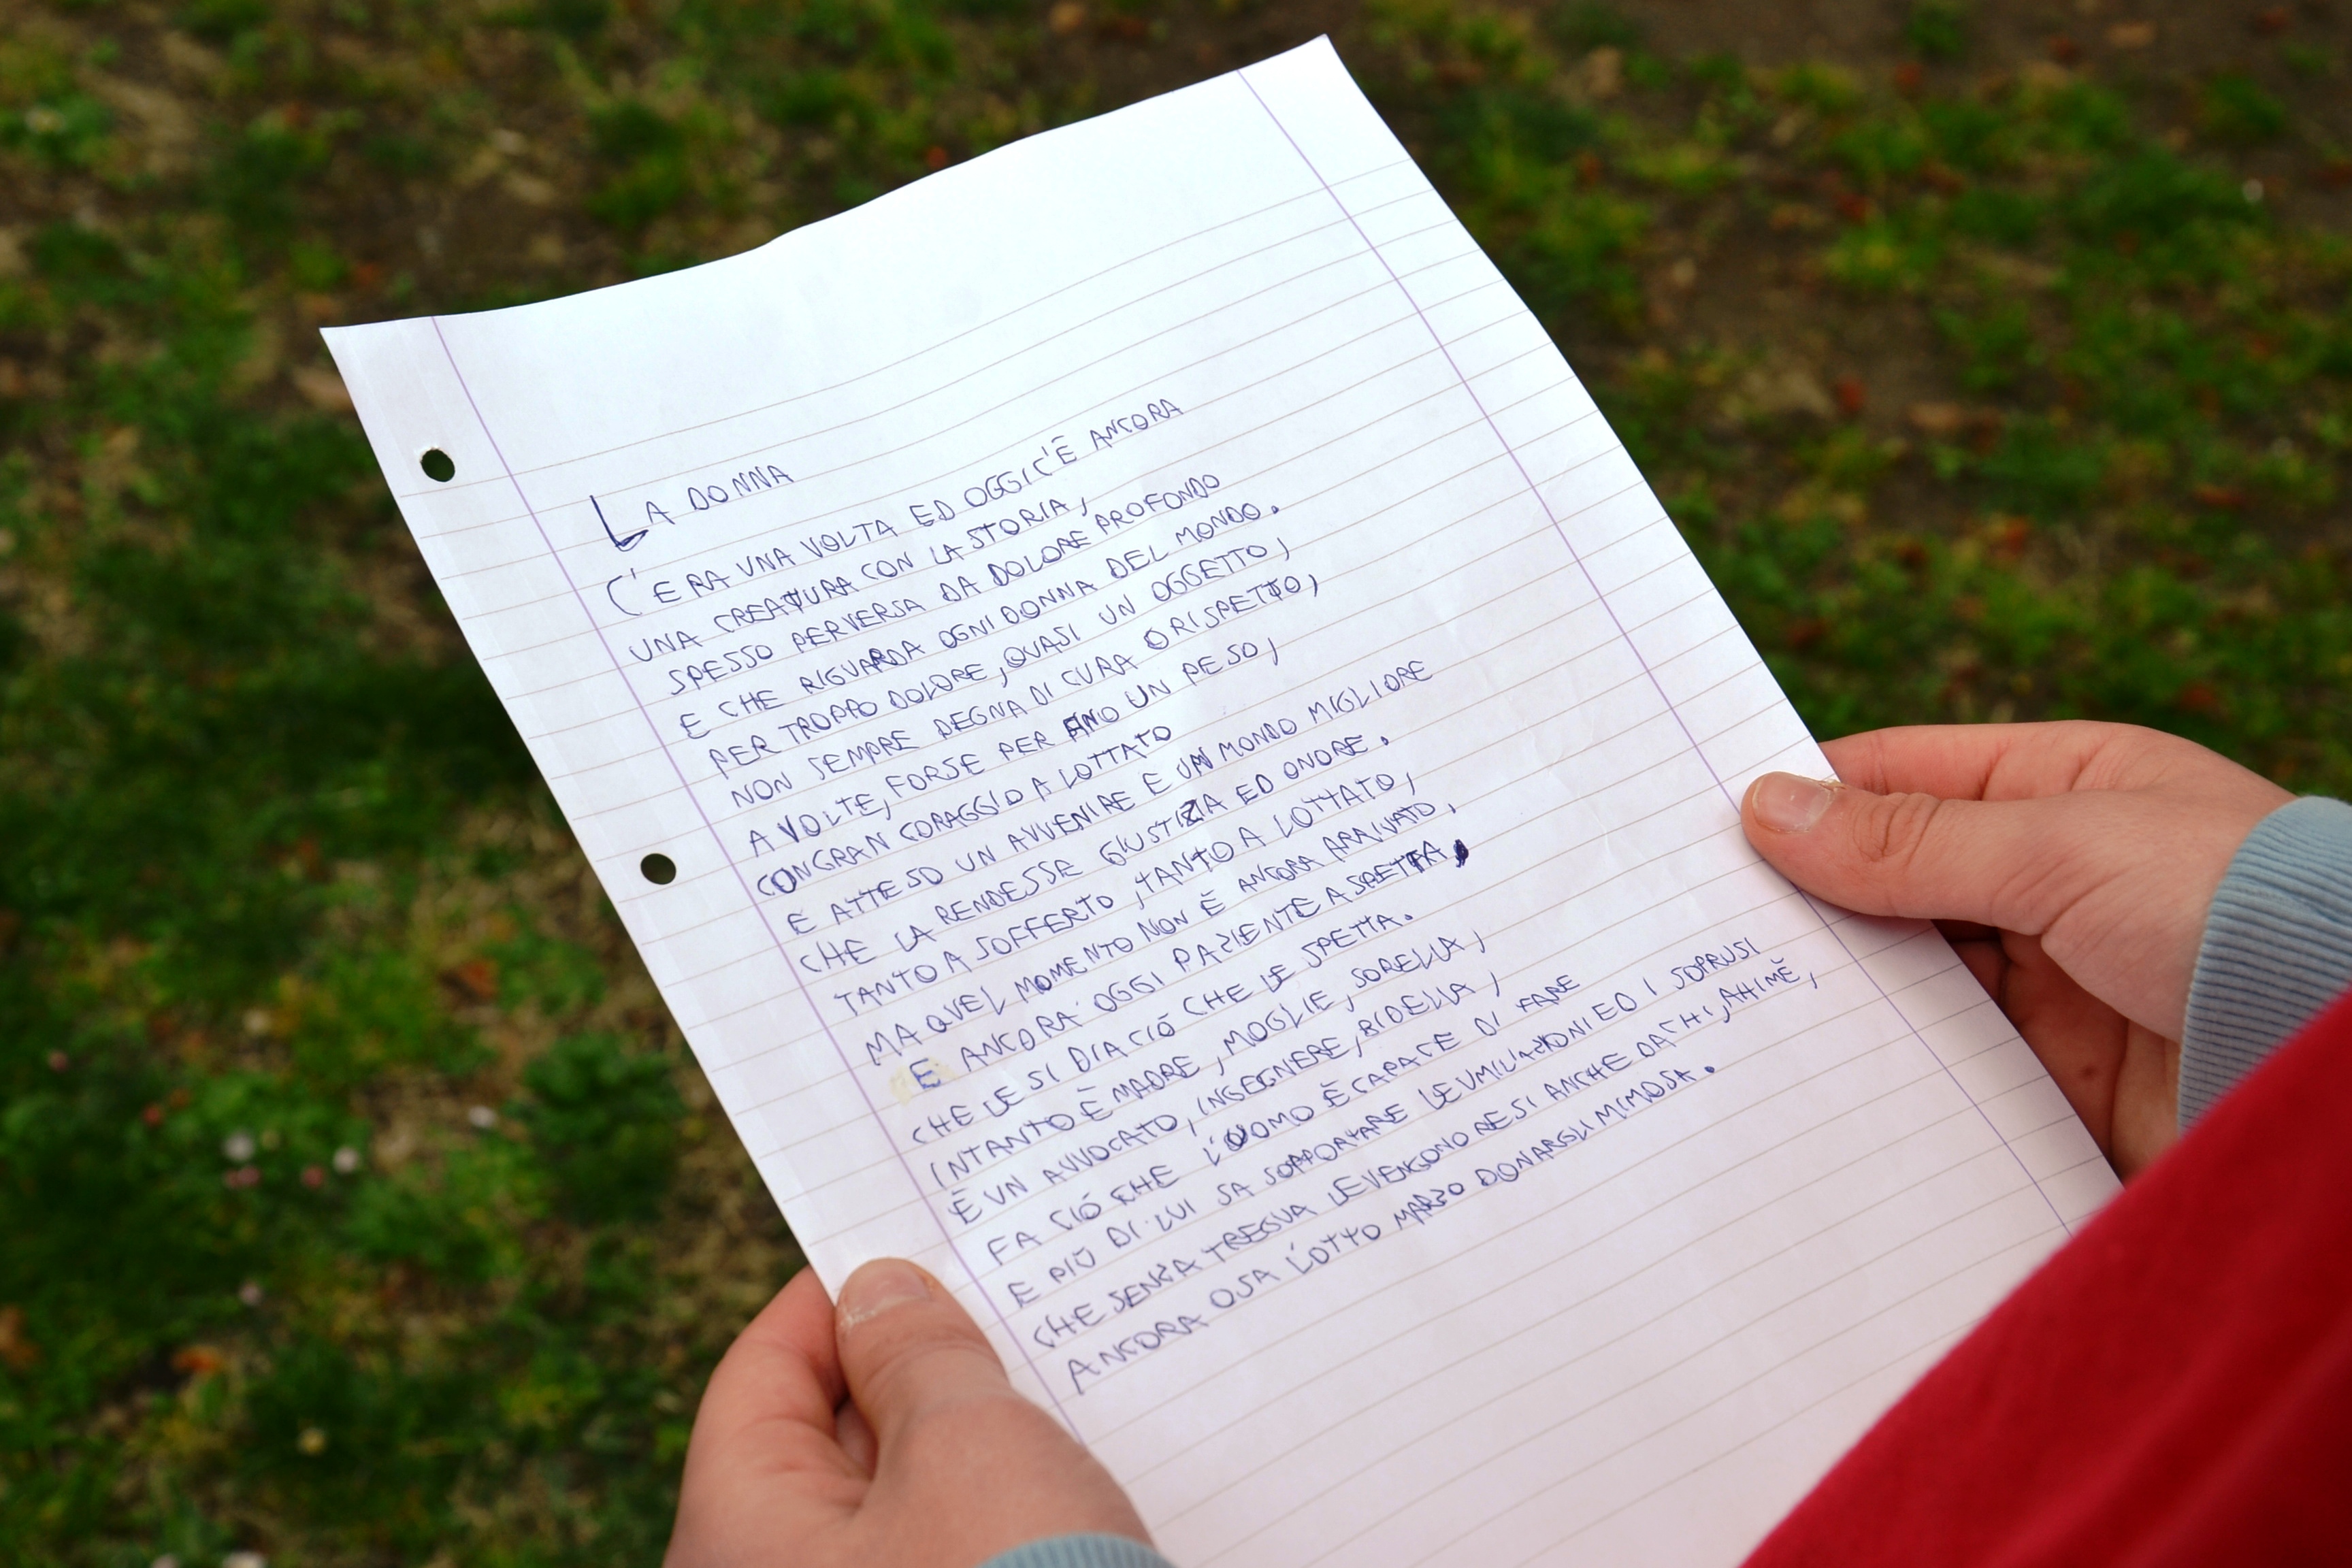 LA DONNA
C'ERA UNA VOLTA ED OGGI C'È ANCORA
UNA CREATURA CON LA STORIA,
SPESSO PERVERSA DA DOLORE PROFONDO
E CHE RIGUARDA OGNI DONNA DEL MONDO.
PER TROPPO DOLORE, QUASI UN OGGETTO,
NON SEMPRE DEGNA DI CURA O RISPETTO,
A VOLTE, FORSE PER FINO UN PESO,
CON GRAN CORAGGIO A LOTTATO
E ATTESO UN AVVENIRE E UN MONDO MIGLIORE
CHE LA RENDESSE GIUSTIZIA ED ONORE.
TANTO A SOFFERTO, TANTO A LOTTATO,
MA QUEL MOMENTO NON È ANCORA ARRIVATO,
E ANCORA OGGI PAZIENTE ASPETTA,
CHE LE SI DIA CIÓ CHE LE SPETTA.
INTANTO È MADRE, MOGLIE, SORELLA,
È UN AVVOCATO, INGEGNERE, BIDELLA,
FA CIÓ CHE L'UOMO È CAPACE DI FARE
E PIÙ DI LUI SA SOPPORTARE LE UMILIAZIONI ED I SOPRUSI
CHE SENZA TREGUA LE VENGONO RESI ANCHE DA CHI, AHIMÈ,
ANCORA OSA L'OTTO MARZO DONARGLI MIMOSA.